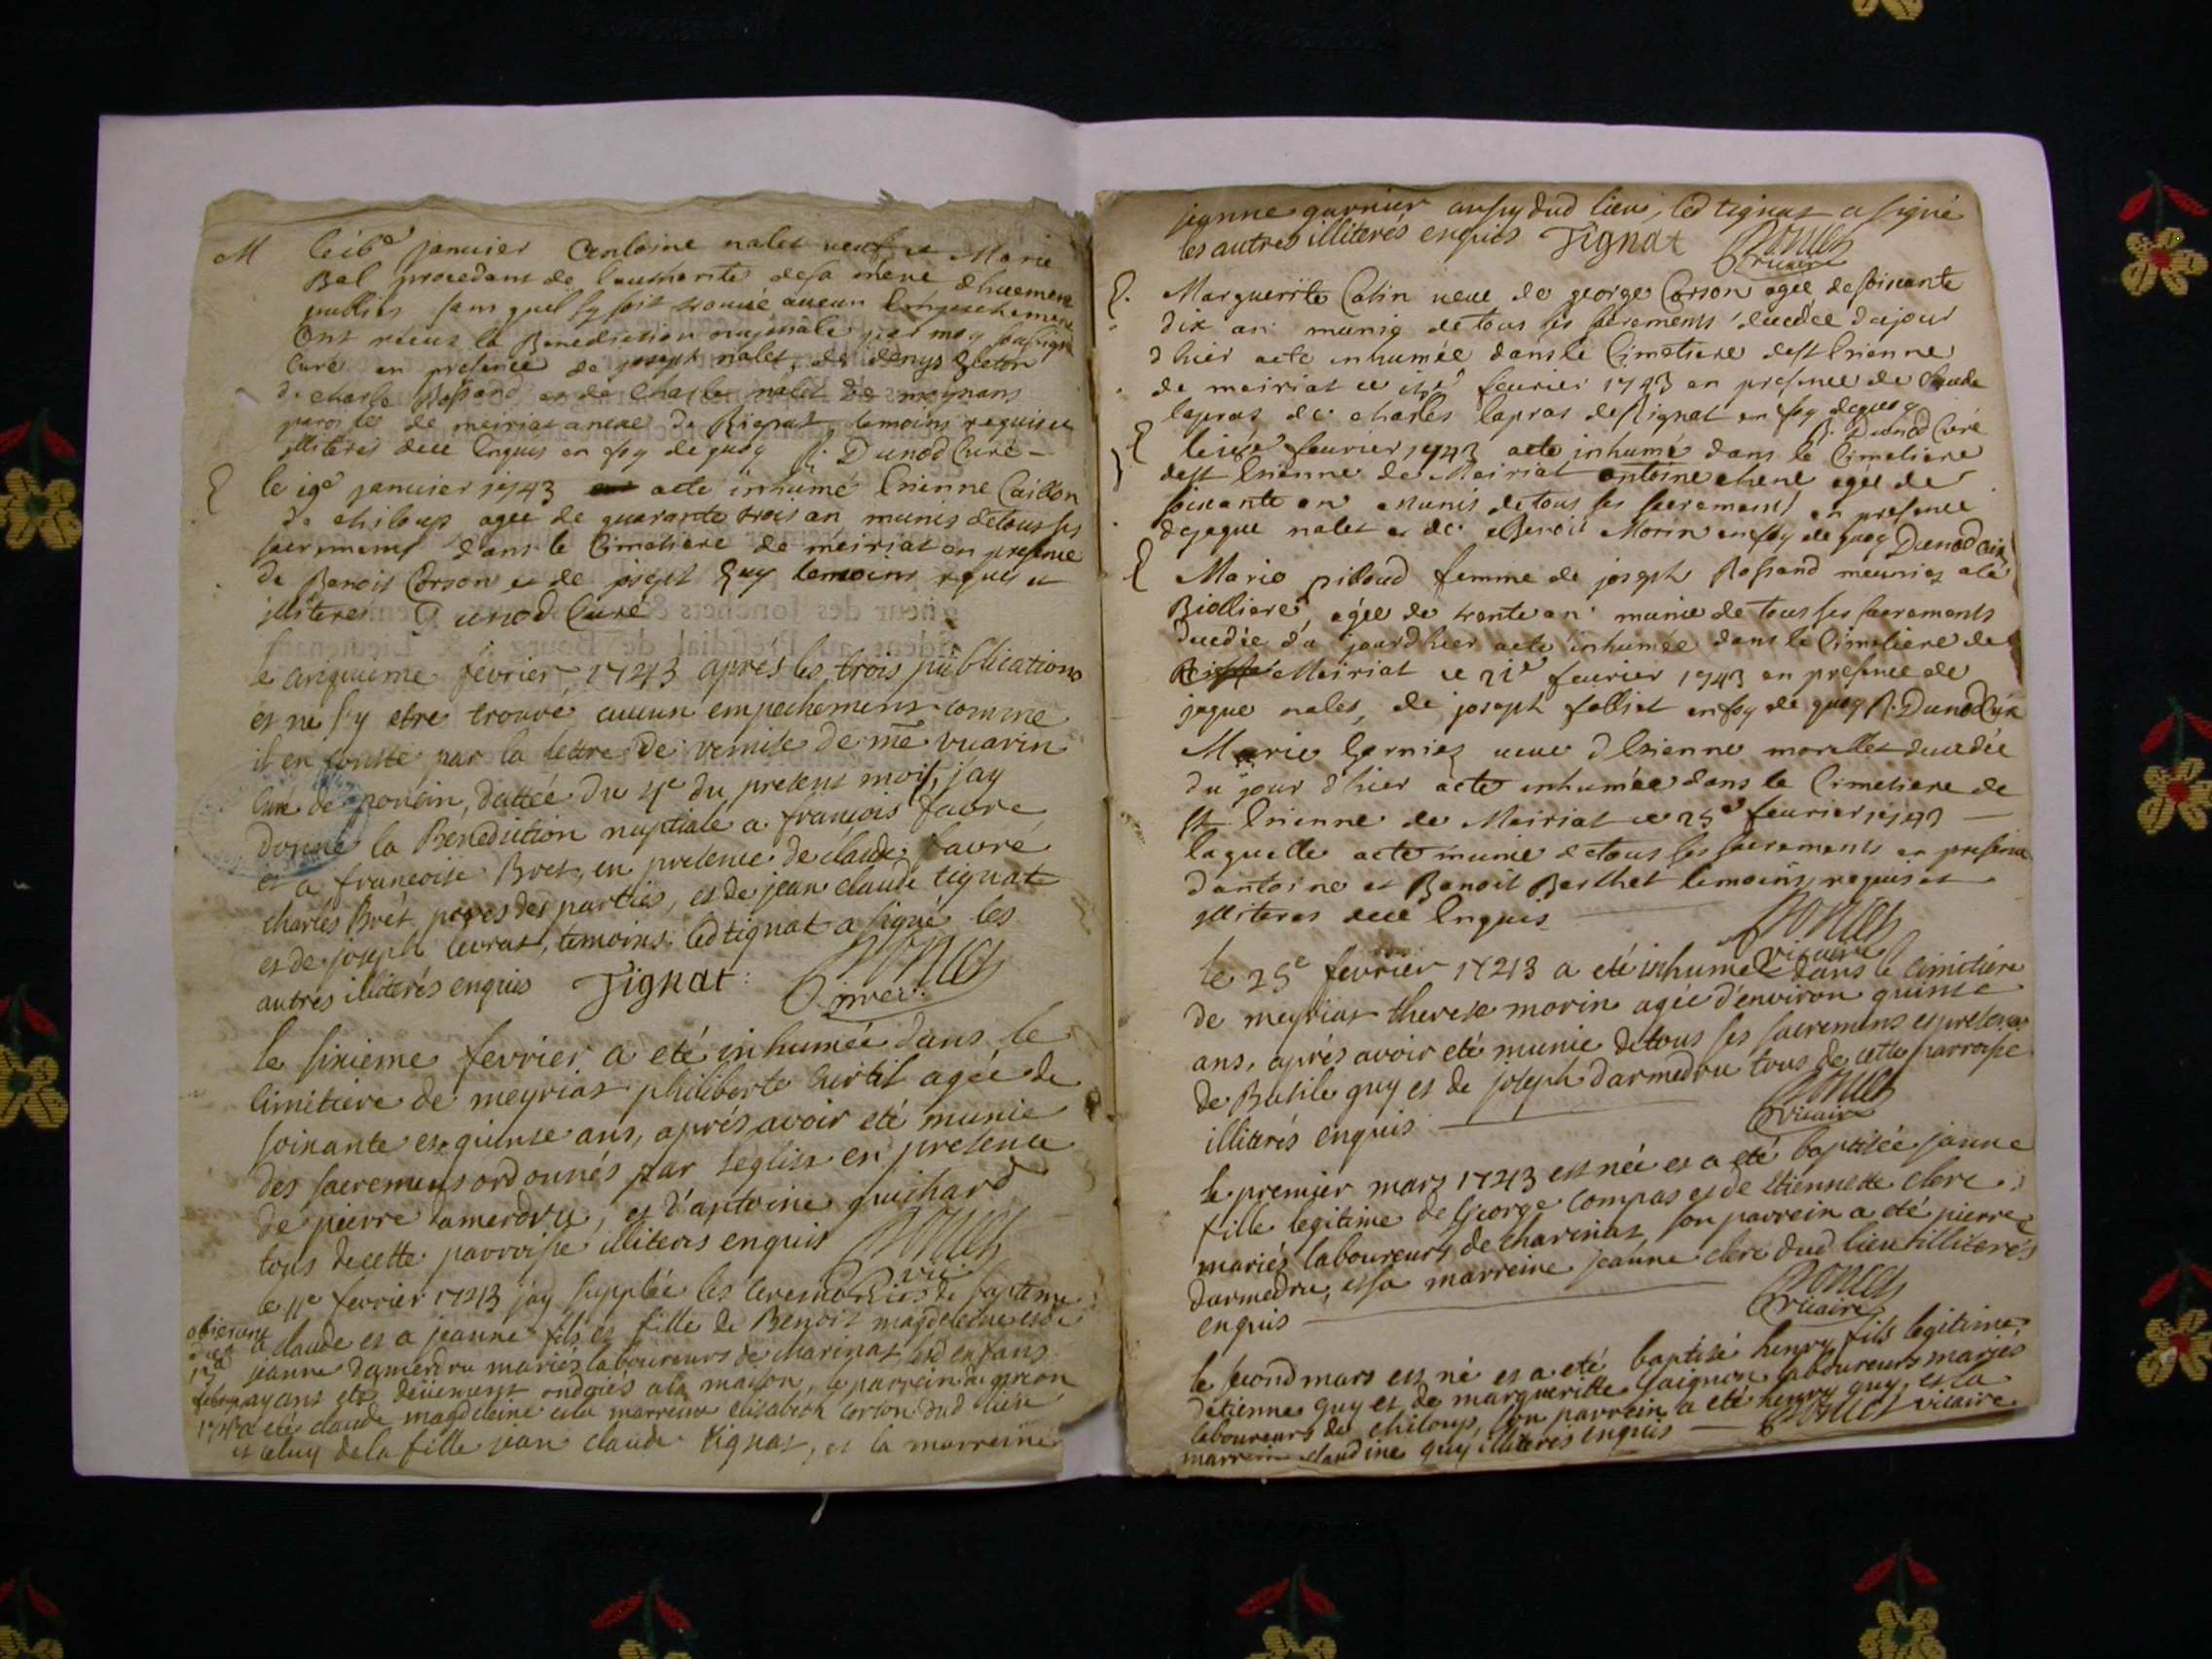 M le 16e janvier Antoine nalet veuf et Marie
Bal procedant de l'authorité de sa mere dhuement
publiés sans quel sy soit trouvé aucun Empechement
Ont receus la Benediction nuptiale par moy soussigné
Curé en presence de joseph nalet, de denys Breton
de charle Rossand et de Charles nalet de meynans
paroisse de meiriat anexe de Rignat, temoins requis et
illiteres deue Enquis en foy de quoy R. Dunod Curé
le 19e janvier 1743 acte inhumé Etienne Caillon
de chiloup agee de quarante trois an munis detous ses
sacremens dans le Cimetiere de meiriat en presence
de Benoit Corson et de joseph Guy temoins requis et
illiteres Dunod Curé
le cinquieme fevrier 1743 aprés les trois publications
et ne s'y etre trouvé aucun empechemens comme
il en conste par la lettre de remise de me vuarin
Curé de poncin, dattée du 4e du present mois, j'ay
donné la Benediction nuptiale a françois favre
et a françoise Bret, en presence de claude favre
charles Brét peres des parties, et de jean claude tignat
et de joseph levrat, temoins; led tignat a signé les
autres illiterés enquis Tignat:
le sixieme fevrier a eté inhumée dans le
Cimitiere de meyriat philiberte Curtil agée de
soixante et quinse ans, aprés avoir eté munie
des sacremens ordonnés par leglise en presence
de pierre damerdru, et d'antoine guichard
tous de cette parroisse illiterés enquis
vic:
le 11e fevrier 1743 jay supplée les ceremonies de baptime
a claude et a jeanne fils et fille de Benoit magdeleine et de
jeanne damerdru mariés laboureurs de charinat lesd enfans
ayans eté deüement ondoiés a la maison, le parrein du garcon
a eté claude magdeleine et la marreine elisabeth corson dud lieu
et celuy de la fille jean claude tignat, et la marreine
jeanne garnier aussy dud lieu, led tignat a signé
les autres illiterés enquis Tignat
vicaire
Marguerite Catin veue de george Corson agée de soixante
dix an munie de tous ses sacrements decedée dujour
d hier acte inhumée dans le Cimetiere de st Etienne
de meiriat ce fevrier 1743 en presence de Claude
lapras de charles lapras de Rignat en foy dequoy
R. Dunod Curé
le fevrier 1743 acte inhumé dans le Cimetiere
de st Etienne de Meiriat antoine chene agée de
soixante an munis de tous ses sacremens en presence
de jaque nalet et de Benoit Morin en foy de quoy Dunod Curé
Marie pilloud femme de joseph Rossand meunier a la
Biolliere, agée de trente an munie de tous ses sacrements
decedée du jourd'hier acte inhumée dans le Cimetiere de
Meiriat ce 21e fevrier 1743 en presence de
jaque nalet, de joseph folliet en foy de quoy R. Dunod Curé
Marie Garnier veue d Etienne morellet decedée
du jour d hier acte inhumée dans le Cimetiere de
st Etienne de Meiriat ce 25e fevrier 1743
laquelle acte munie detous ses sacrements en presence
dantoine et Benoit Berthet temoins requis et
illiteres deue Enquis
vicaire
le 25e fevrier 1743 a eté inhumée dans le cimitiere
de meyriat therese morin agée d'environ quinse
ans, aprés avoir eté munie de tous ses sacremens es presences
de Basile guy et de joseph darmedru tous de cette parroisse
illiterés enquis
vicaire
le premier mars 1743 est née et a eté baptisée jeanne
fille legitime de George compas et de Etiennette clerc
mariés laboureurs de charinat, son parrein a eté pierre
darmedru, et sa marreine jeanne clerc dud lieu illiterés
enquis
vicaire
le second mars est né et a eté baptisé henry fils legitime
d'etienne guy et de margueritte saignon laboureurs mariés
laboureurs de chiloup, son parrein a eté henry guy, et la
marreine claudine guy illiterés enquis vicaire